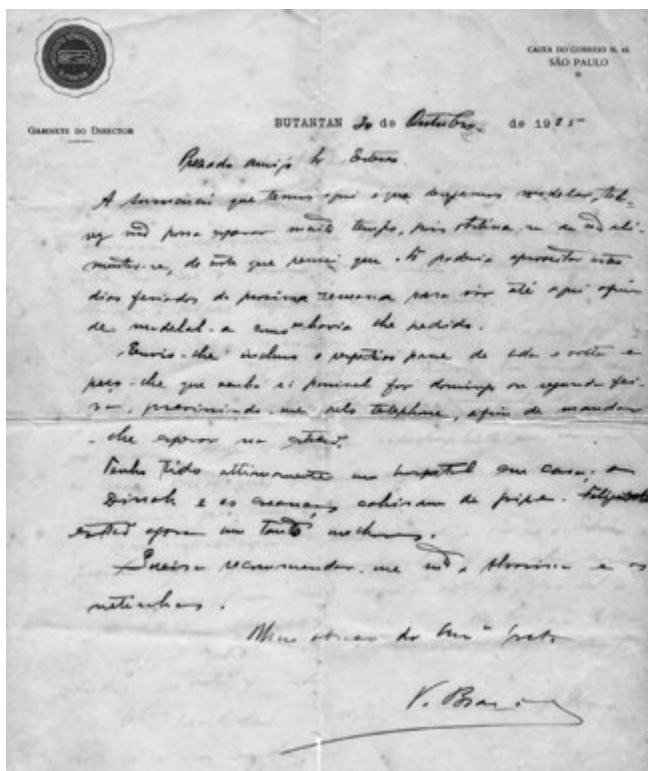 CAIXA DO CORREIO N. 65
SÃO PAULO
GABINETE DO DIRECTOR
BUTANTAN 30 de Outubro de 1925
Prezado amigo Sr. Esteves
A que temos aqui e que desejamos modelar, tal-
vez não possa esperar muito tempo, pois obstina-se de não ali-
mentar-se, de sorte que pensei que poderia aproveitar estes
dias feriados da proxima semana para vir até aqui afim
de modelal-a como havia lhe pedido.
Envio-lhe incluso o respectivo passe de ida e volta e
peço-lhe que venha si possivel for domingo ou segunda fei-
ra, prevenindo-me pelo telephone, afim de mandar
-lhe esperar na
Tenho tido ultimamente um hospital em casa; a
Dinah e as creanças cahiram de gripe. Felizmente
estão agora um tanto melhores.
Queira recommendar-me e os
netinhos.
do
V. Brazil